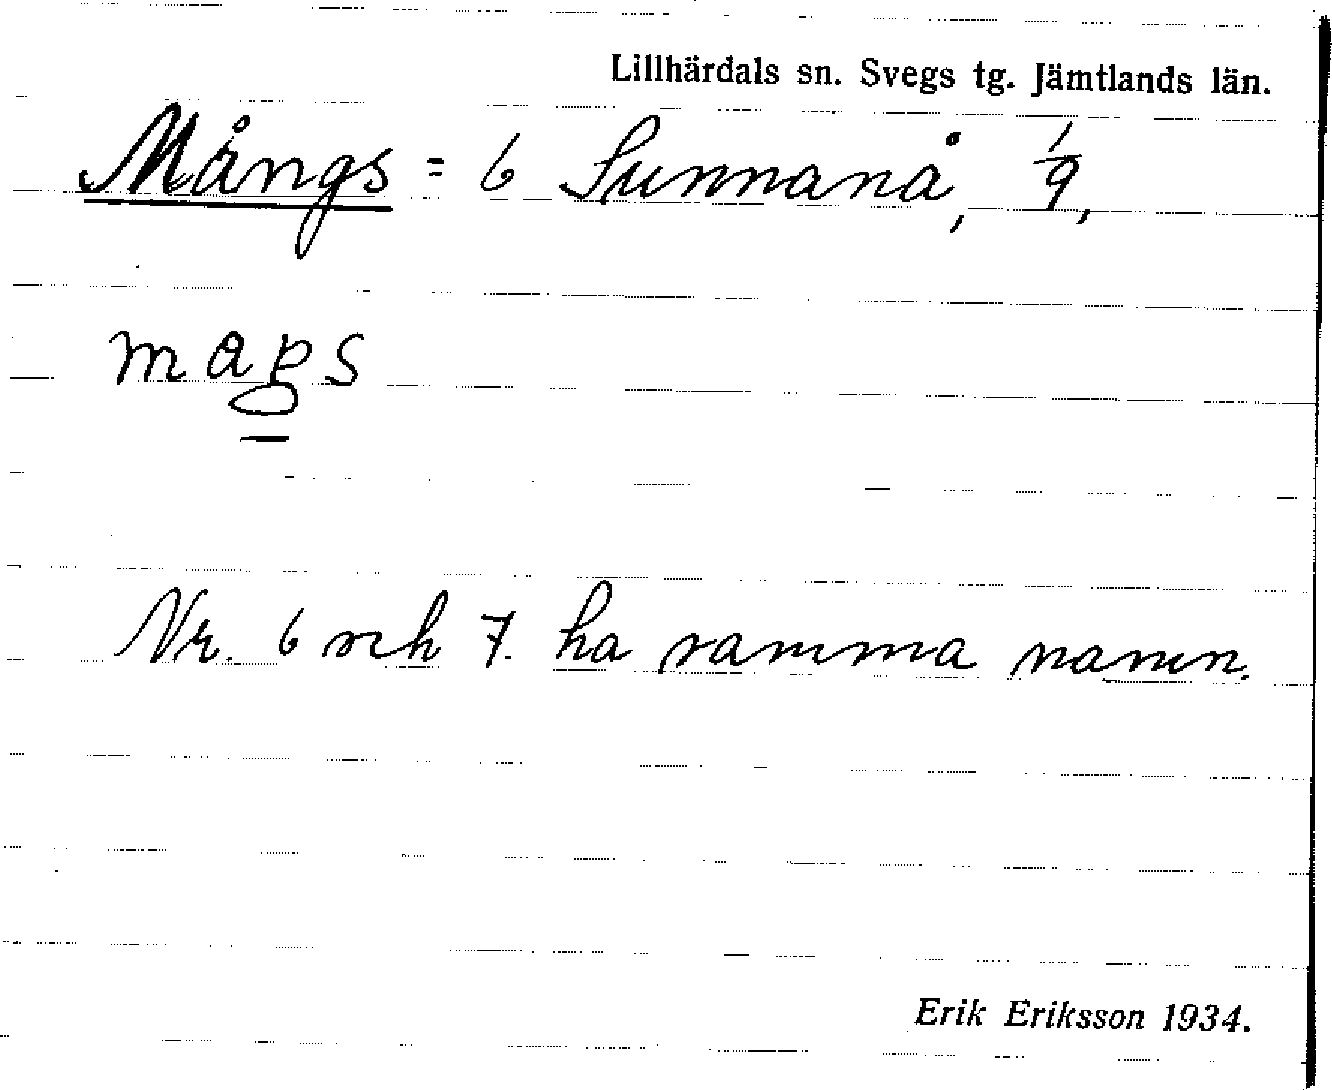 Lillhärdals sn. Svegs tg. Jämtlands län.
Mångs = 6 Sunnanå, 1/9,
Nr. 6 och 7. ha samma namn.
Erik Eriksson 1934.